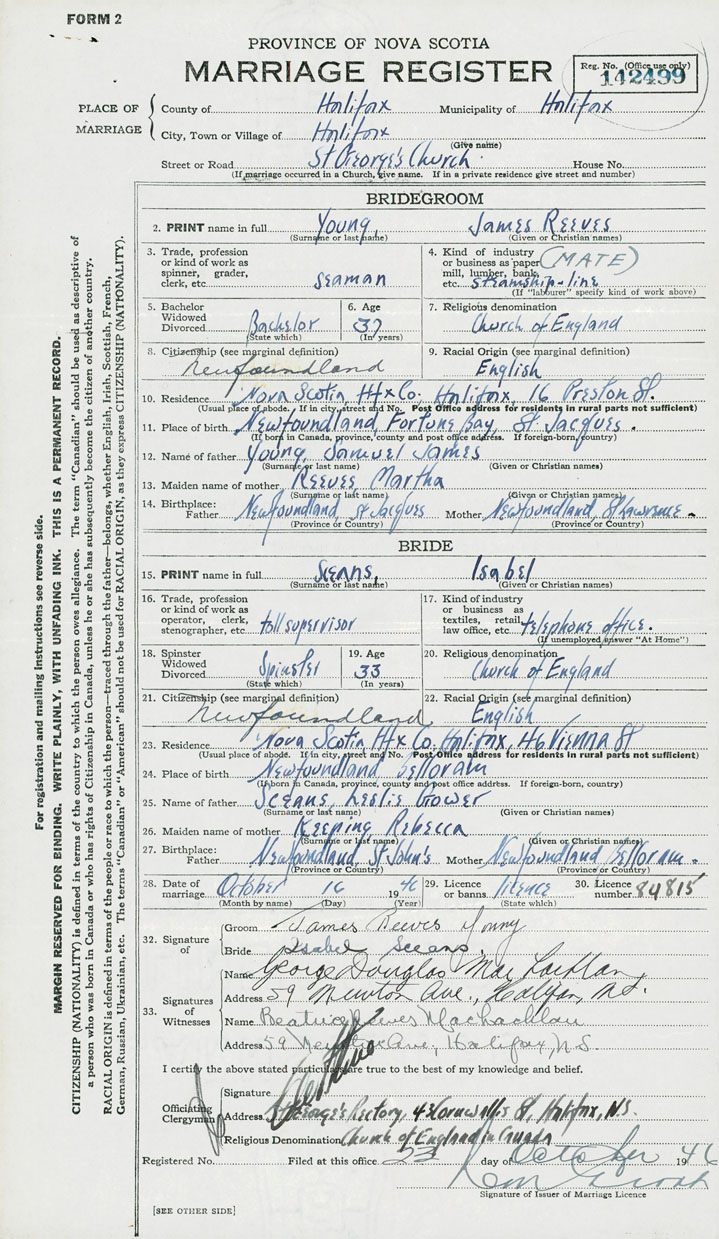 FORM 2
PROVINCE OF NOVA SCOTIA
MARRIAGE REGISTER
Reg. No. (Office use only)
142499
PLACE OF MARRIAGE
County of Halifax Municipality of Halifax
City, Town or Village of Halifax
(Give name)
Street or Road St George's Church House No.
(If marriage occurred in a Church, give name. If in a private residence give street and number)
BRIDEGROOM
2. PRINT name in full Young, James Reeves
(Surname or last name) (Given or Christian names)
3. Trade, profession or kind of work as spinner, grader, clerk, etc. Seaman
4. Kind of industry or business as paper mill, lumber, bank, etc. (MATE) steamship-line
(If "labourer" specify kind of work above)
5. Bachelor Widowed Divorced Bachelor
(State which)
6. Age 37
(In years)
7. Religious denomination Church of England
8. Citizenship (see marginal definition) Newfoundland
9. Racial Origin (see marginal definition) English
10. Residence Nova Scotia Hfx Co. Halifax, 16 Preston St.
(Usual place of abode. If in city, street and No. Post Office address for residents in rural parts not sufficient)
11. Place of birth Newfoundland, Fortune Bay, St. Jacques.
(If born in Canada, province, county and post office address. If foreign-born, country)
12. Name of father Young, Samuel James
(Surname or last name) (Given or Christian names)
13. Maiden name of mother Reeves Martha
(Surname or last name) (Given or Christian names)
14. Birthplace: Father Newfoundland St Jacques Mother Newfoundland, St Lawrence
(Province or Country) (Province or Country)
BRIDE
15. PRINT name in full Sceans, Isabel
(Surname or last name) (Given or Christian names)
16. Trade, profession or kind of work as operator, clerk, stenographer, etc. toll supervisor
17. Kind of industry or business as textiles, retail, law office, etc. telephone office.
(If unemployed answer "At Home")
18. Spinster Widowed Divorced Spinster
(State which)
19. Age 33
(In years)
20. Religious denomination Church of England
21. Citizenship (see marginal definition) Newfoundland
22. Racial Origin (see marginal definition) English
23. Residence Nova Scotia Hfx Co, Halifax, 46 Vienna St
(Usual place of abode. If in city, street and No. Post Office address for residents in rural parts not sufficient)
24. Place of birth Newfoundland Belloram
(If born in Canada, province, county and post office address. If foreign-born, country)
25. Name of father Sceans, Leslie Gower
(Surname or last name) (Given or Christian names)
26. Maiden name of mother Keeping Rebecca
(Surname or last name) (Given or Christian names)
27. Birthplace: Father Newfoundland, St John's Mother Newfoundland Belloram.
(Province or Country) (Province or Country)
28. Date of marriage October 16 1946
(Month by name) (Day) (Year)
29. Licence or banns licence
(State which)
30. Licence number 84815
32. Signature of
Groom James Reeves Young
Bride Isabel Sceans.
33. Signatures of Witnesses
Name George Douglas MacLachlan
Address 59 Newton Ave., Halifax, N.S.
Name Beatrice Reeves MacLachlan
Address 59 Newton Ave, Halifax, N.S.
I certify the above stated particulars are true to the best of my knowledge and belief.
Officiating Clergyman
Signature
Address St George's Rectory, 42 Cornwallis St, Halifax, N.S.
Religious Denomination Church of England in Canada
Registered No. Filed at this office 23 day of October 1946
Signature of Issuer of Marriage Licence
[SEE OTHER SIDE]
For registration and mailing instructions see reverse side.
MARGIN RESERVED FOR BINDING. WRITE PLAINLY, WITH UNFADING INK. THIS IS A PERMANENT RECORD.
CITIZENSHIP (NATIONALITY) is defined in terms of the country to which the person owes allegiance. The term "Canadian" should be used as descriptive of
a person who was born in Canada or who has rights of Citizenship in Canada, unless he or she has subsequently become the citizen of another country.
RACIAL ORIGIN is defined in terms of the people or race to which the person—traced through the father—belongs, whether English, Irish, Scottish, French,
German, Russian, Ukrainian, etc. The terms "Canadian" or "American" should not be used for RACIAL ORIGIN, as they express CITIZENSHIP (NATIONALITY).